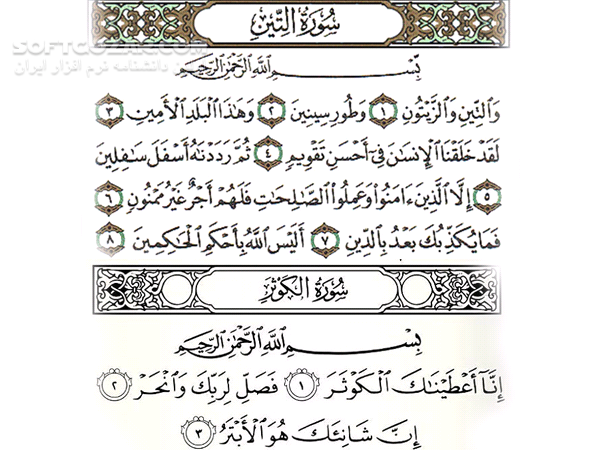 سُورَةُ التِّينِ
SOFTGOZAR.COM
دانشنامه نرم افزار ایران
بِسْمِ ٱللَّهِ ٱلرَّحْمَٰنِ ٱلرَّحِيمِ
وَٱلتِّينِ وَٱلزَّيْتُونِ ١ وَطُورِ سِينِينَ ٢ وَهَٰذَا ٱلْبَلَدِ ٱلْأَمِينِ ٣
لَقَدْ خَلَقْنَا ٱلْإِنسَٰنَ فِىٓ أَحْسَنِ تَقْوِيمٍ ٤ ثُمَّ رَدَدْنَٰهُ أَسْفَلَ سَٰفِلِينَ
٥ إِلَّا ٱلَّذِينَ ءَامَنُوا۟ وَعَمِلُوا۟ ٱلصَّٰلِحَٰتِ فَلَهُمْ أَجْرٌ غَيْرُ مَمْنُونٍ ٦
فَمَا يُكَذِّبُكَ بَعْدُ بِٱلدِّينِ ٧ أَلَيْسَ ٱللَّهُ بِأَحْكَمِ ٱلْحَٰكِمِينَ ٨
سُورَةُ الكَوْثَرِ
بِسْمِ ٱللَّهِ ٱلرَّحْمَٰنِ ٱلرَّحِيمِ
إِنَّآ أَعْطَيْنَٰكَ ٱلْكَوْثَرَ ١ فَصَلِّ لِرَبِّكَ وَٱنْحَرْ ٢
إِنَّ شَانِئَكَ هُوَ ٱلْأَبْتَرُ ٣